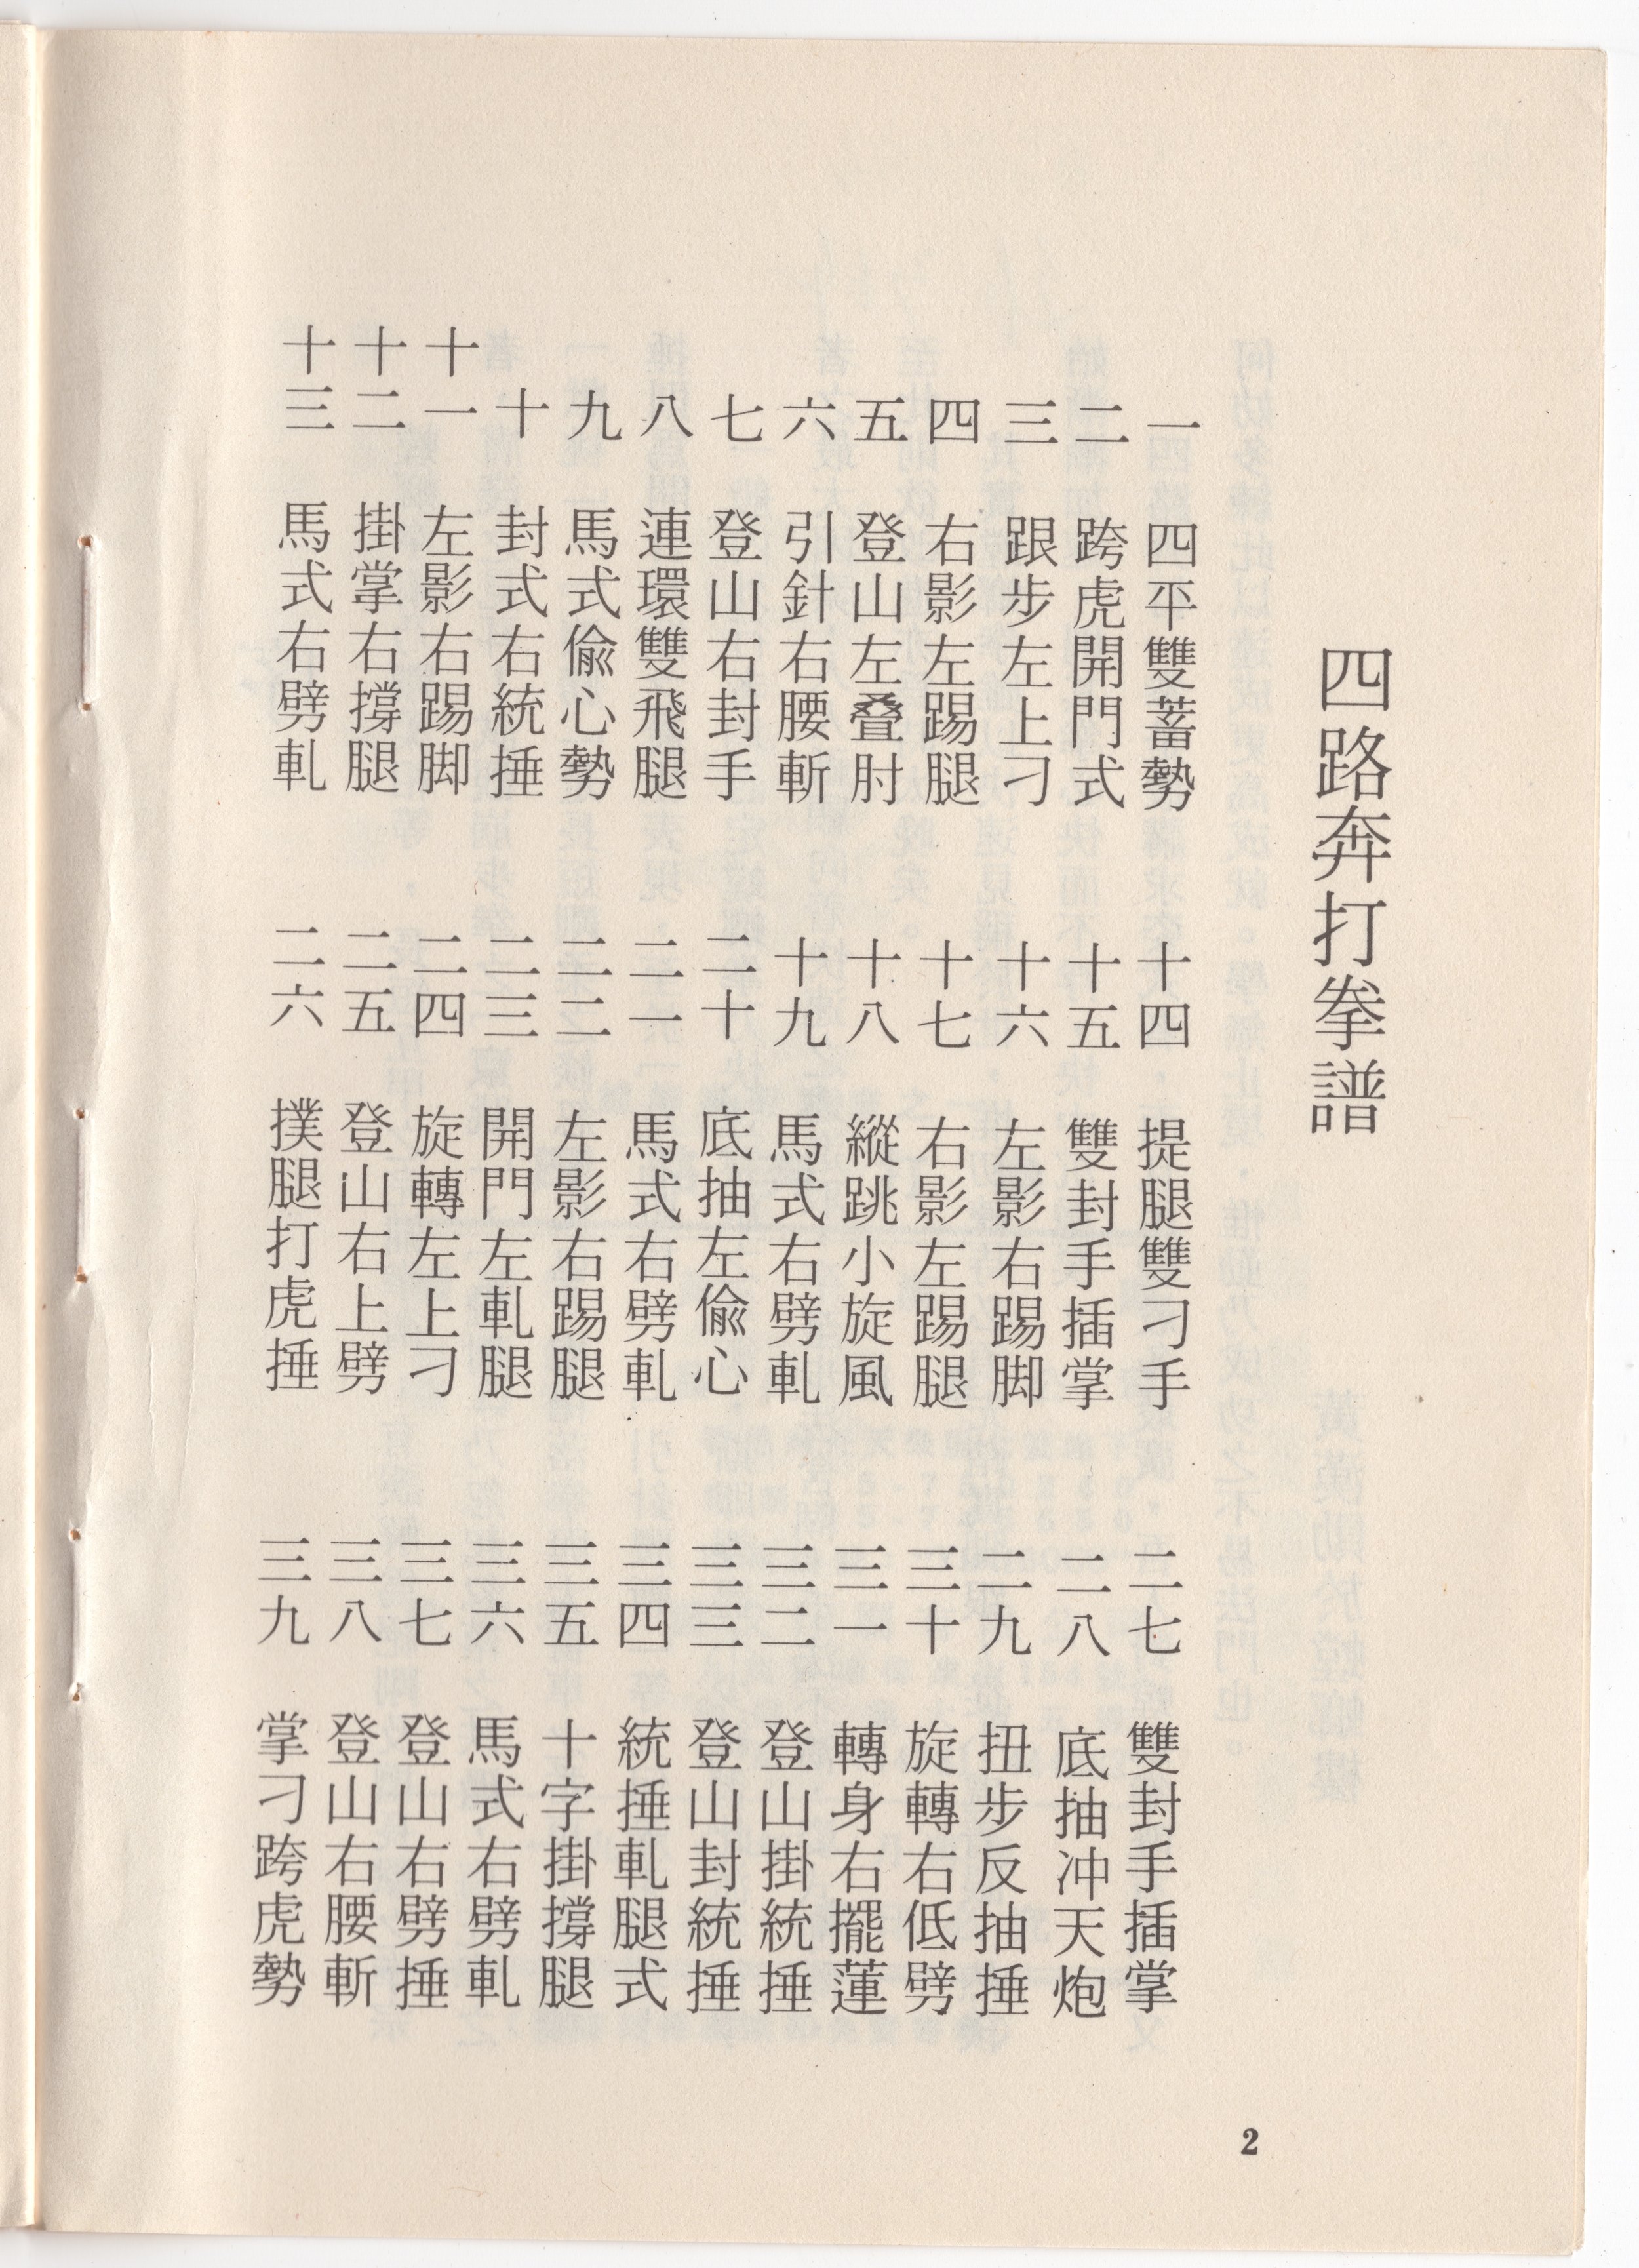 四路奔打拳譜
一 四平雙蓄勢
二 跨虎開門式
三 跟步左上刁
四 右影左踢腿
五 登山左叠肘
六 引針右腰斬
七 登山右封手
八 連環雙飛腿
九 馬式偷心勢
十 封式右統捶
十一 左影右踢脚
十二 掛掌右撐腿
十三 馬式右劈軋
十四 提腿雙刁手
十五 雙封手插掌
十六 左影右踢脚
十七 右影左踢腿
十八 縱跳小旋風
十九 馬式右劈軋
二十 底抽左偷心
二一 馬式右劈軋
二二 左影右踢腿
二三 開門左軋腿
二四 旋轉左上刁
二五 登山右上劈
二六 撲腿打虎捶
二七 雙封手插掌
二八 底抽冲天炮
二九 扭步反抽捶
三十 旋轉右低劈
三一 轉身右擺蓮
三二 登山掛統捶
三三 登山封統捶
三四 統捶軋腿式
三五 十字掛撐腿
三六 馬式右劈軋
三七 登山右劈捶
三八 登山右腰斬
三九 掌刁跨虎勢
2